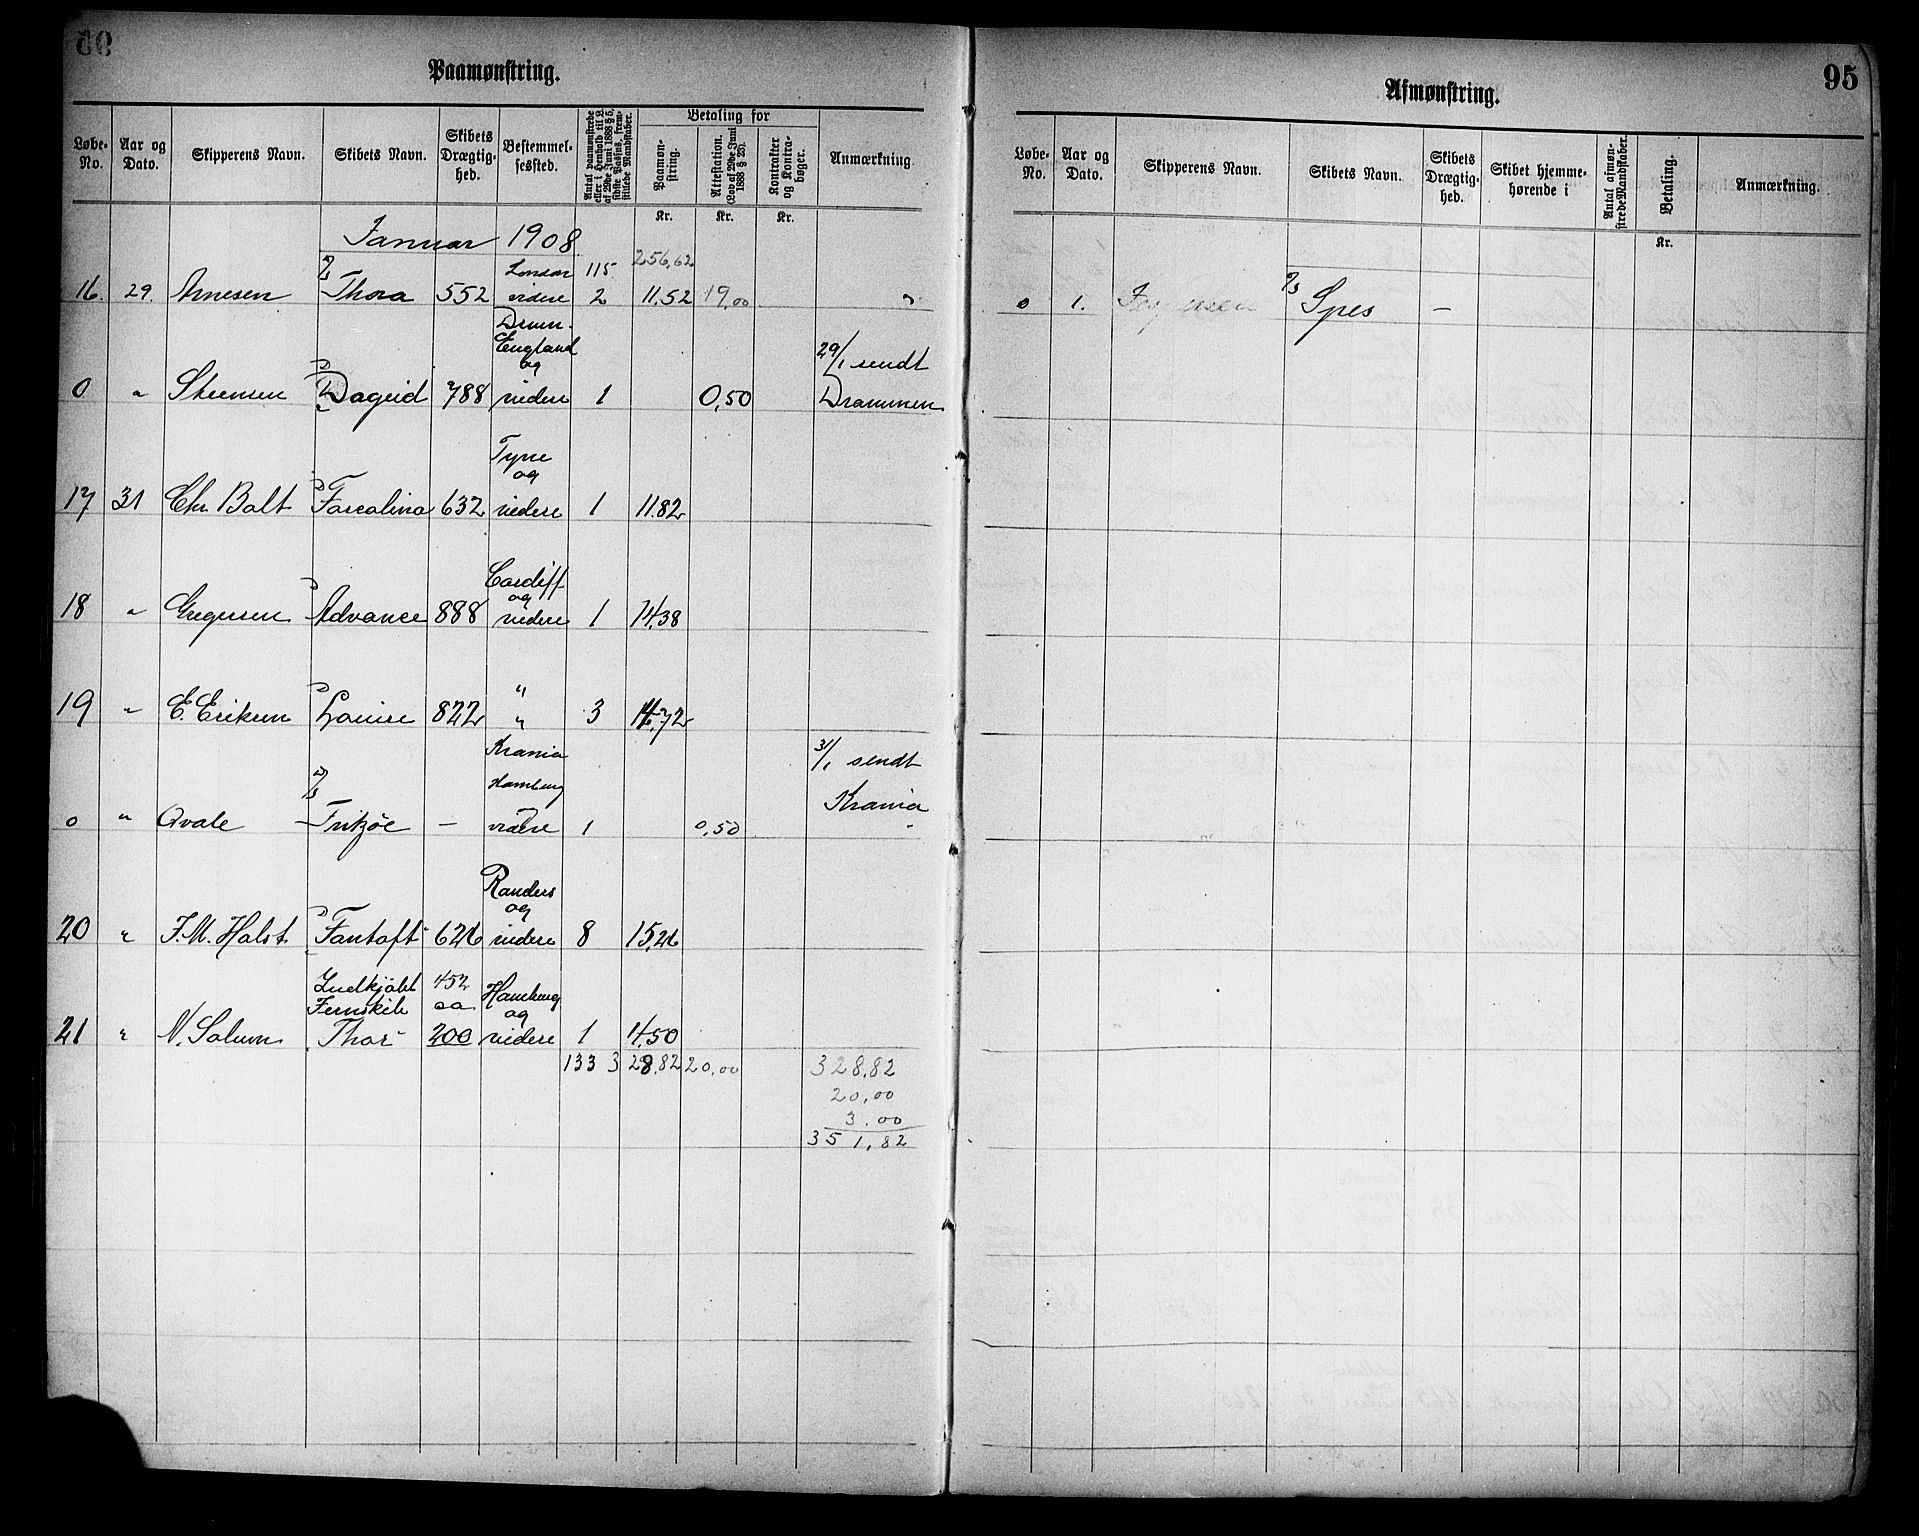 Paamønstring.
Løbe-No. Aar og Dato. Skipperens Navn. Skibets Navn. Skibets Drægtig-hed. Bestemmel-sessted. Antal paamønstrede eller i Henhold til L. af 29de Juni 1888 § 5, sidste Passus, frem-stillede Mandskaber. Betaling for Paamøn-string. Attestation. (Lov af 29de Juni 1888 § 23). Kontrakter og Kontra-bøger. Anmærkning.
Kr. Kr. Kr.
Januar 1908
London 115 256,62
16. 29. Arnesen Thora 552 videre 2 11.52 19,00 "
Dram.
England
og 29/1 sendt
0 " Steensen Dageid 788 videre 1 0,50 Drammen
Tyne
og
17 31 Chr Balt Forcalina 632 videre 1 11.82
Cardiff
og
18 " Gregersen Advance 888 videre 1 14,38
"
19 " E. Eriksen Louise 822 " 3 14,72
Krania
Hamburg 31/1 sendt
Krania
0 " Qvale Fritzöe — videre 1 0,50 "
Randers
og
20 " J.M. Holst Fantoft 626 videre 8 15,26
Indkjöbt 452 Hamburg
Jernskib og
21 " N. Salum Thor 200 videre 1 4,50
133 328.82 20,00 328,82
20,00
3.00
351,82
Afmønstring.
95
Løbe-No. Aar og Dato. Skipperens Navn. Skibets Navn. Skibets Drægtig-hed. Skibet hjemme-hørende i Antal afmøn-strede Mandskaber. Betaling. Anmærkning.
Kr.
0 1. Spes —